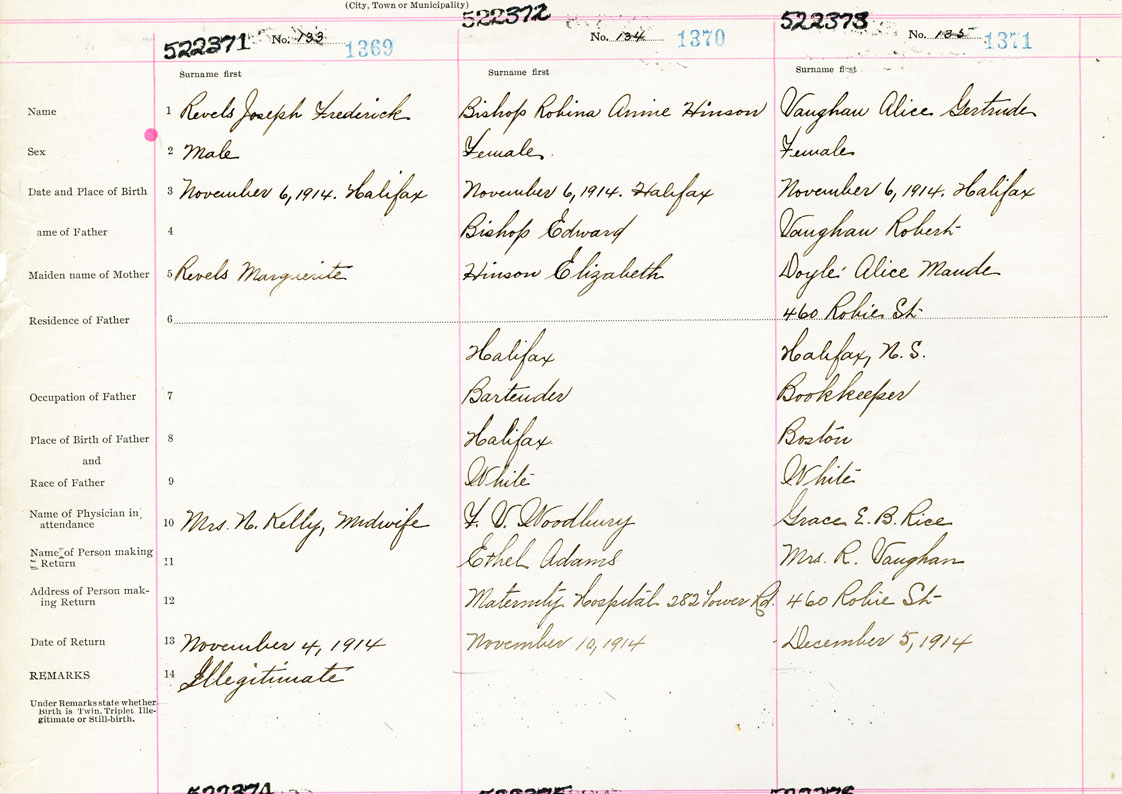 (City, Town or Municipality)
522371 No. 133 1369
522372 No. 134 1370
522373 No. 135 1371
Surname first Surname first Surname first
Name 1 Revels Joseph Frederick Bishop Robina Annie Hinson Vaughan Alice Gertrude
Sex 2 Male Female Female
Date and Place of Birth 3 November 6, 1914. Halifax November 6, 1914. Halifax November 6, 1914. Halifax
ame of Father 4 Bishop Edward Vaughan Robert
Maiden name of Mother 5 Revels Marguerite Hinson Elizabeth Doyle Alice Maude
460 Robie St.
Residence of Father 6
Halifax Halifax, N.S.
Occupation of Father 7 Bartender Bookkeeper
Place of Birth of Father 8 Halifax Boston
and
Race of Father 9 White White
Name of Physician in
attendance 10 Mrs. N. Kelly, Midwife F. V. Woodbury Grace E. B. Rice
Name of Person making
Return 11 Ethel Adams Mrs. R. Vaughan
Address of Person mak-
ing Return 12 Maternity Hospital 282 Tower Rd. 460 Robie St.
Date of Return 13 November 4, 1914 November 10, 1914 December 5, 1914
REMARKS 14 Illegitimate
Under Remarks state whether
Birth is Twin, Triplet, Ille-
gitimate or Still-birth.
522374 522375 522376